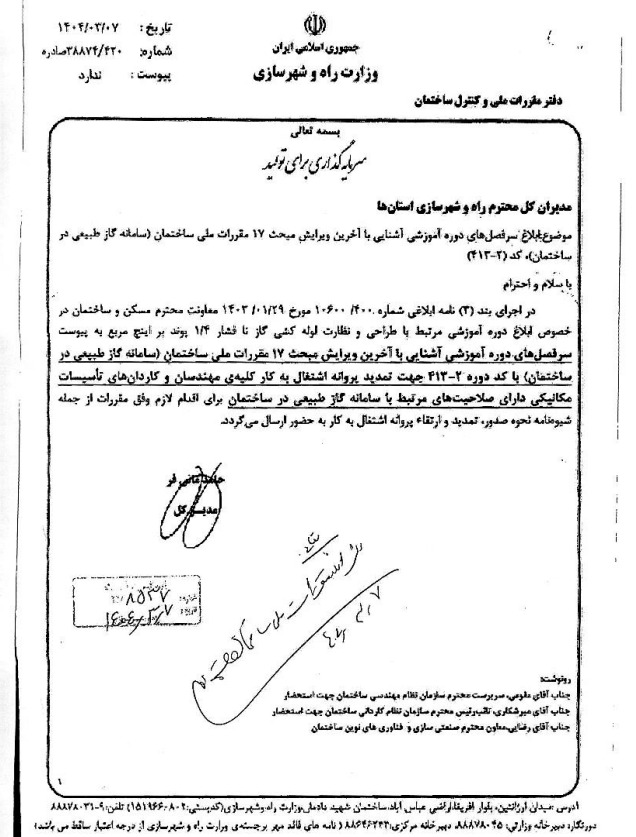 جمهوری اسلامی ایران
وزارت راه و شهرسازی
تاریخ : ۱۴۰۴/۰۳/۰۷
شماره: ۳۸۸۷۴/۴۲۰صادره
پیوست : ندارد
دفتر مقررات ملی و کنترل ساختمان
بسمه تعالی
سرمایه گذاری برای تولید
مدیران کل محترم راه و شهرسازی استان‌ها
موضوع:ابلاغ سرفصل‌های دوره آموزشی آشنایی با آخرین ویرایش مبحث ۱۷ مقررات ملی ساختمان (سامانه گاز طبیعی در
ساختمان)، کد (۲-۴۱۳)
با سلام و احترام
در اجرای بند (۳) نامه ابلاغی شماره ۱۰۶۰۰/۴۰۰ مورخ ۱۴۰۳/۰۱/۲۹ معاونت محترم مسکن و ساختمان در
خصوص ابلاغ دوره آموزشی مرتبط با طراحی و نظارت لوله کشی گاز تا فشار ۱/۴ پوند بر اینچ مربع به پیوست
سرفصل‌های دوره آموزشی آشنایی با آخرین ویرایش مبحث ۱۷ مقررات ملی ساختمان (سامانه گاز طبیعی در
ساختمان) با کد دوره ۲-۴۱۳ جهت تمدید پروانه اشتغال به کار کلیه‌ی مهندسان و کاردان‌های تأسیسات
مکانیکی دارای صلاحیت‌های مرتبط با سامانه گاز طبیعی در ساختمان برای اقدام لازم وفق مقررات از جمله
شیوه‌نامه نحوه صدور، تمدید و ارتقاء پروانه اشتغال به کار به حضور ارسال می‌گردد.
حامد مانی فر
مدیر کل
۸۵۳۷
۱۴۰۴/۳/۷
رونوشت:
جناب آقای مقومی، سرپرست محترم سازمان نظام مهندسی ساختمان جهت استحضار
جناب آقای میرشکاری، نائب‌رئیس محترم سازمان نظام کاردانی ساختمان جهت استحضار
جناب آقای رضایی، معاون محترم صنعتی سازی و فناوری های نوین ساختمان
۱
آدرس :میدان آرژانتین، بلوار آفریقا،اراضی عباس آباد، ساختمان شهید دادمان،وزارت راه وشهرسازی(کدپستی:۱۵۱۹۶۶۰۸۰۲) تلفن:۹-۸۸۸۷۸۰۳۱
دورنگار، دبیرخانه وزارتی: ۸۸۸۷۸۰۴۵، دبیرخانه مرکزی:۸۸۶۴۶۲۴۳( نامه های فاقد مهر برجسته‌ی وزارت راه و شهرسازی از درجه اعتبار ساقط می باشد)